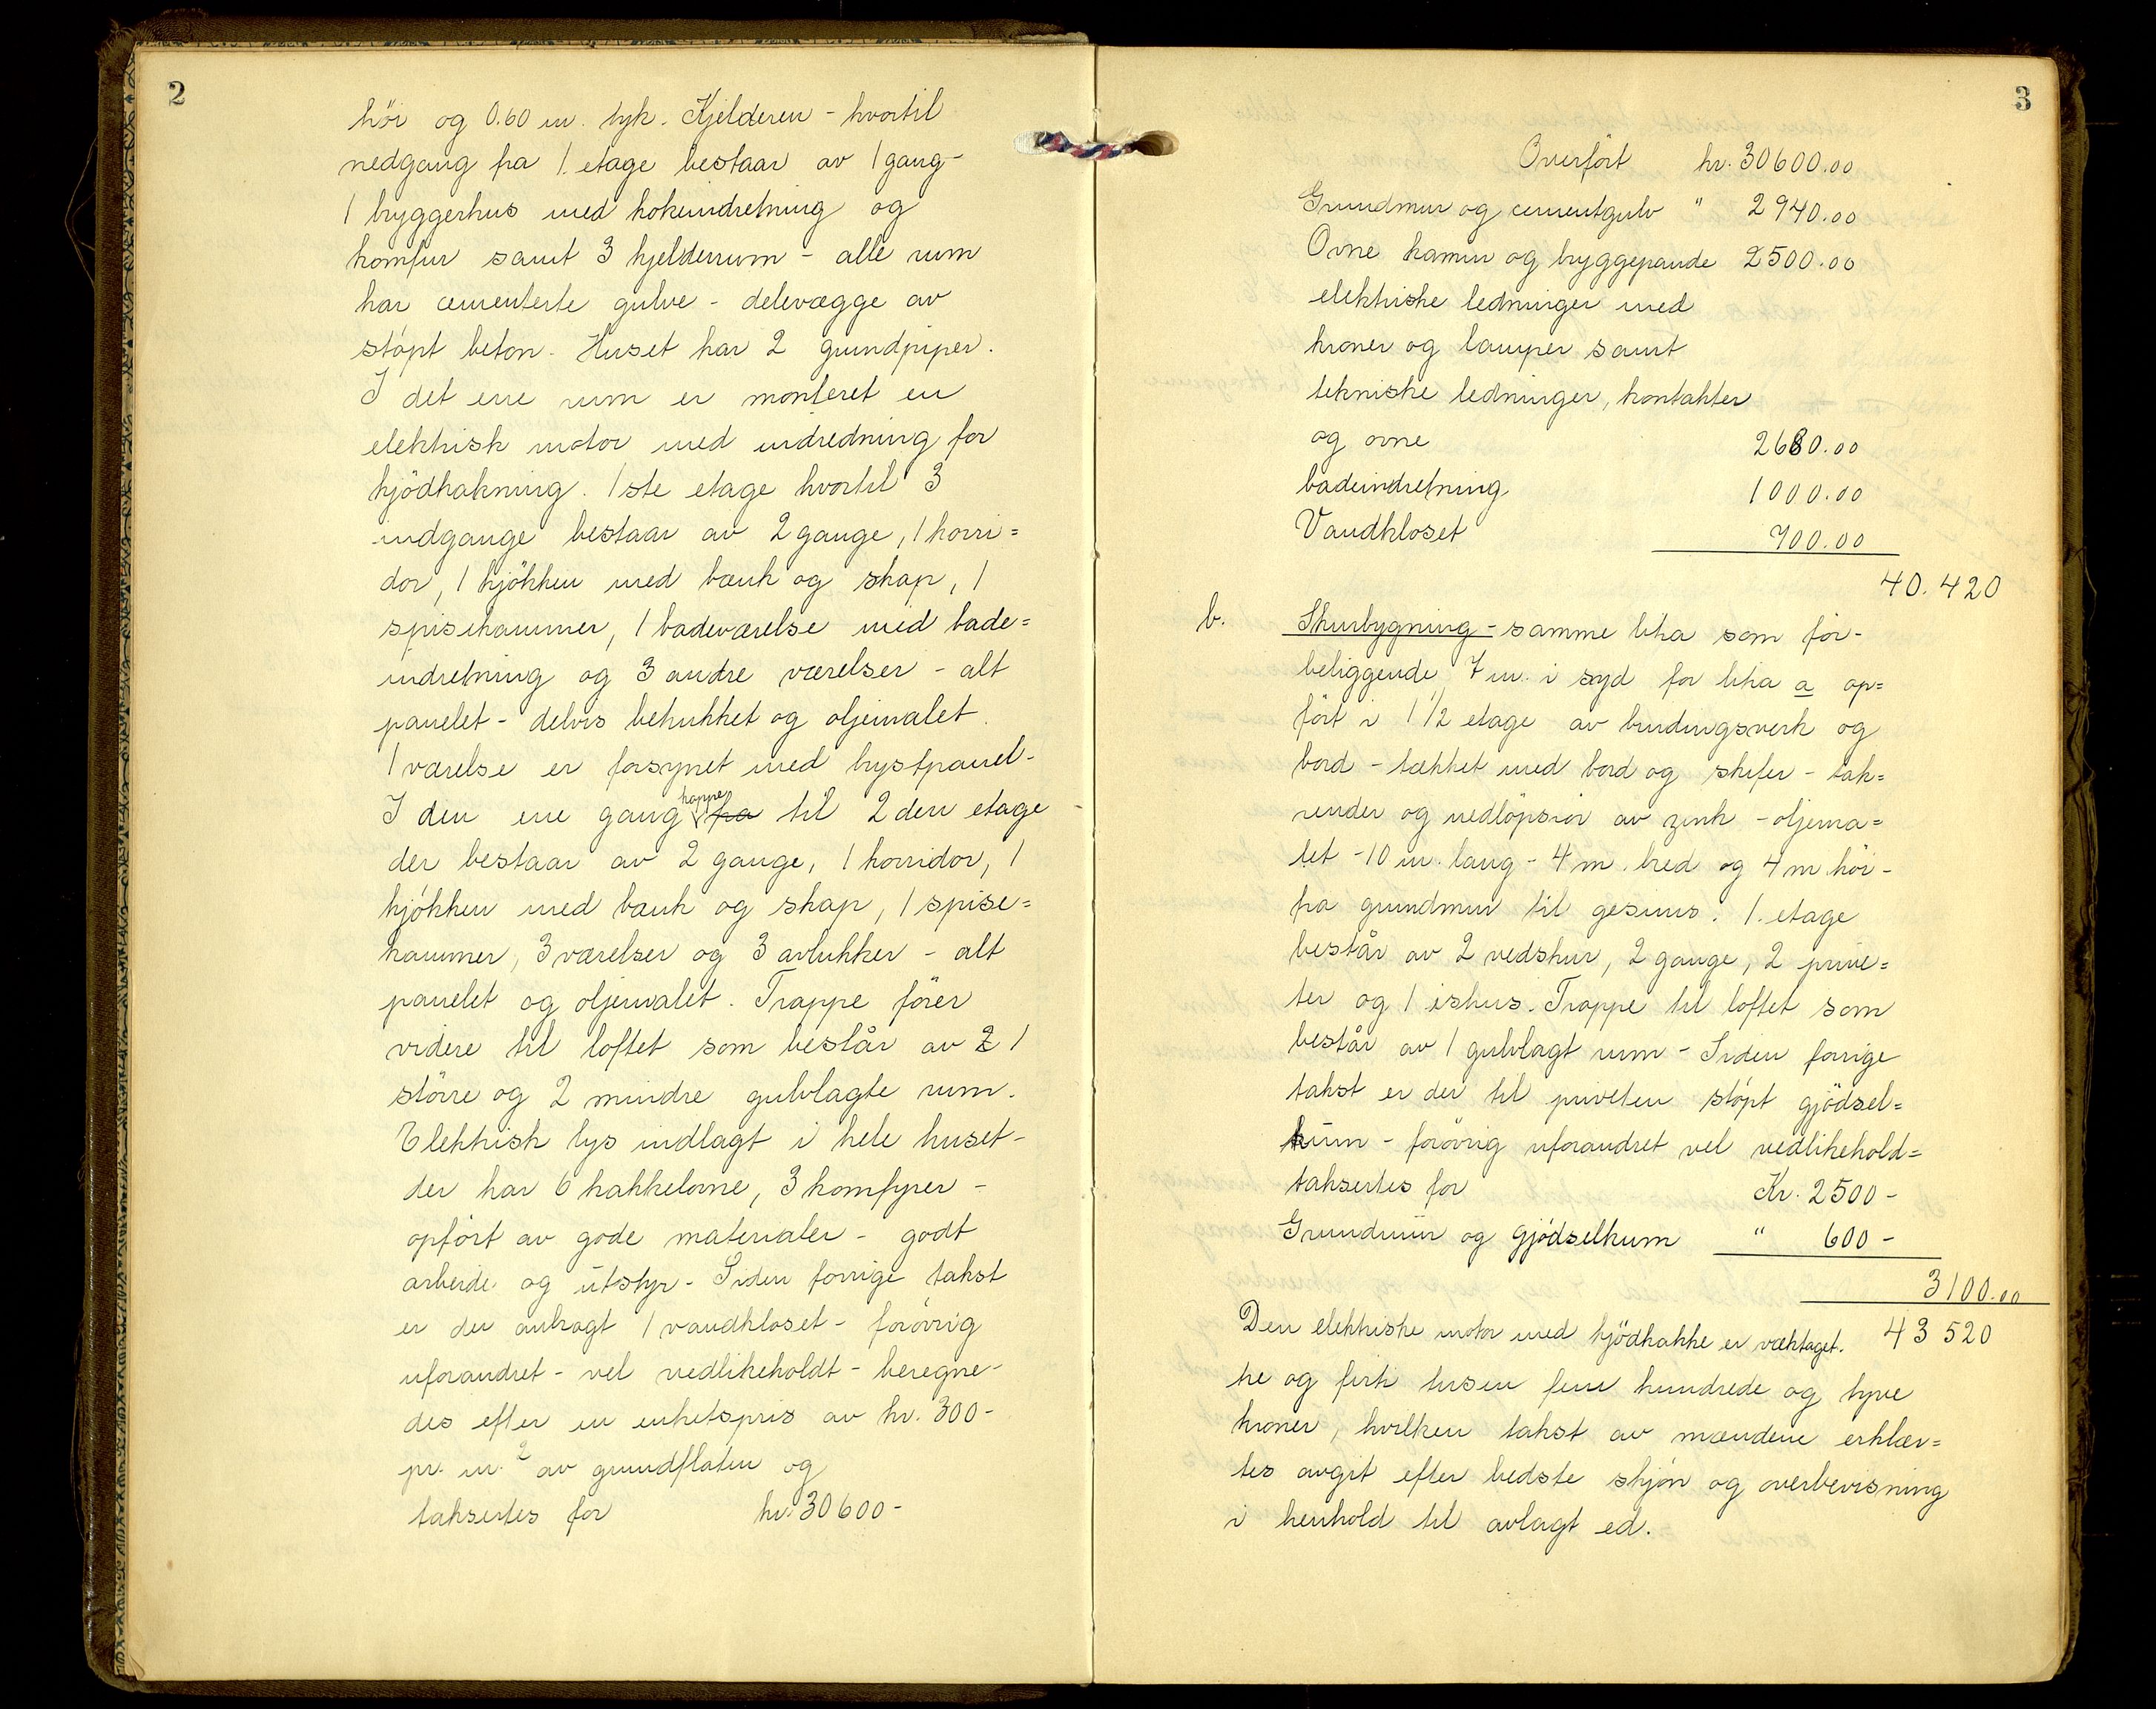 2
höi og 0.60 m. tyk. Kjelderen - hvortil
nedgang fra 1. etage bestaar av 1 gang -
1 bryggerhus med kokeindretning og
komfur samt 3 kjelderrum - alle rum
har cementerte gulve - delevægge av
stöpt beton. Huset har 2 grundpiper.
I det ene rum er monteret en
elektrisk motor med indredning for
kjödhakning. 1ste etage hvortil 3
indgange bestaar av 2 gange, 1 korri=
dor, 1 kjökken med bænk og skap, 1
spisekammer, 1 badeværelse med bade=
indretning og 3 andre værelser - alt
panelet - delvis betrukket og oljemalet.
1 værelse er forsynet med brystpanel -
I den ene gang trappe fra til 2den etage
der bestaar av 2 gange, 1 korridor, 1
kjökken med bænk og skap, 1 spise=
kammer, 3 værelser og 3 avlukker - alt
panelet og oljemalet. Trappe förer
videre til loftet som består av 2 1
större og 2 mindre gulvlagte rum.
Elektrisk lys indlagt i hele huset -
der har 6 kakkelovne, 3 komfyrer -
opfört av gode materialer - godt
arbeide og utstyr - Siden forrige takst
er der anbragt 1 vandkloset - forövrig
uforandret - vel vedlikeholdt - beregne-
des efter en enhetspris av kr. 300 -
pr. m.² av grundflaten og
taksertes for kr. 30600 -
3
Overfört kr. 30600.00
Grundmur og cementgulv " 2940.00
Ovne kamin og bryggepande 2500.00
elektriske ledninger med
kroner og lamper samt
tekniske ledninger, kontakter
og ovne 2680.00
badeindretning 1000.00
Vandkloset 700.00
40.420
b. Skurbygning - samme litra som för -
beliggende 7 m. i syd for litra a op=
fört i 1 1/2 etage av bindingsverk og
bord - tækket med bord og skifer - tak=
render og nedlöpsrör av zink - oljema=
let - 10 m. lang - 4 m. bred og 4 m. höi -
fra grundmur til gesims. 1. etage
består av 2 vedskur, 2 gange, 2 prive=
ter og 1 ishus. Trappe til loftet som
består av 1 gulvlagt rum - Siden forrige
takst er der til priveten stöpt gjödsel=
kum - forövrig uforandret vel vedlikehold=
taksertes for Kr. 2500 -
Grundmur og gjödselkum " 600 -
3100.00
Den elektriske motor med kjödhakke er væktaget. 43 520
tre og firti tusen fem hundrede og tyve
kroner, hvilken takst av mændene erklær=
tes avgit efter bedste skjön og overbevisning
i henhold til avlagt ed.